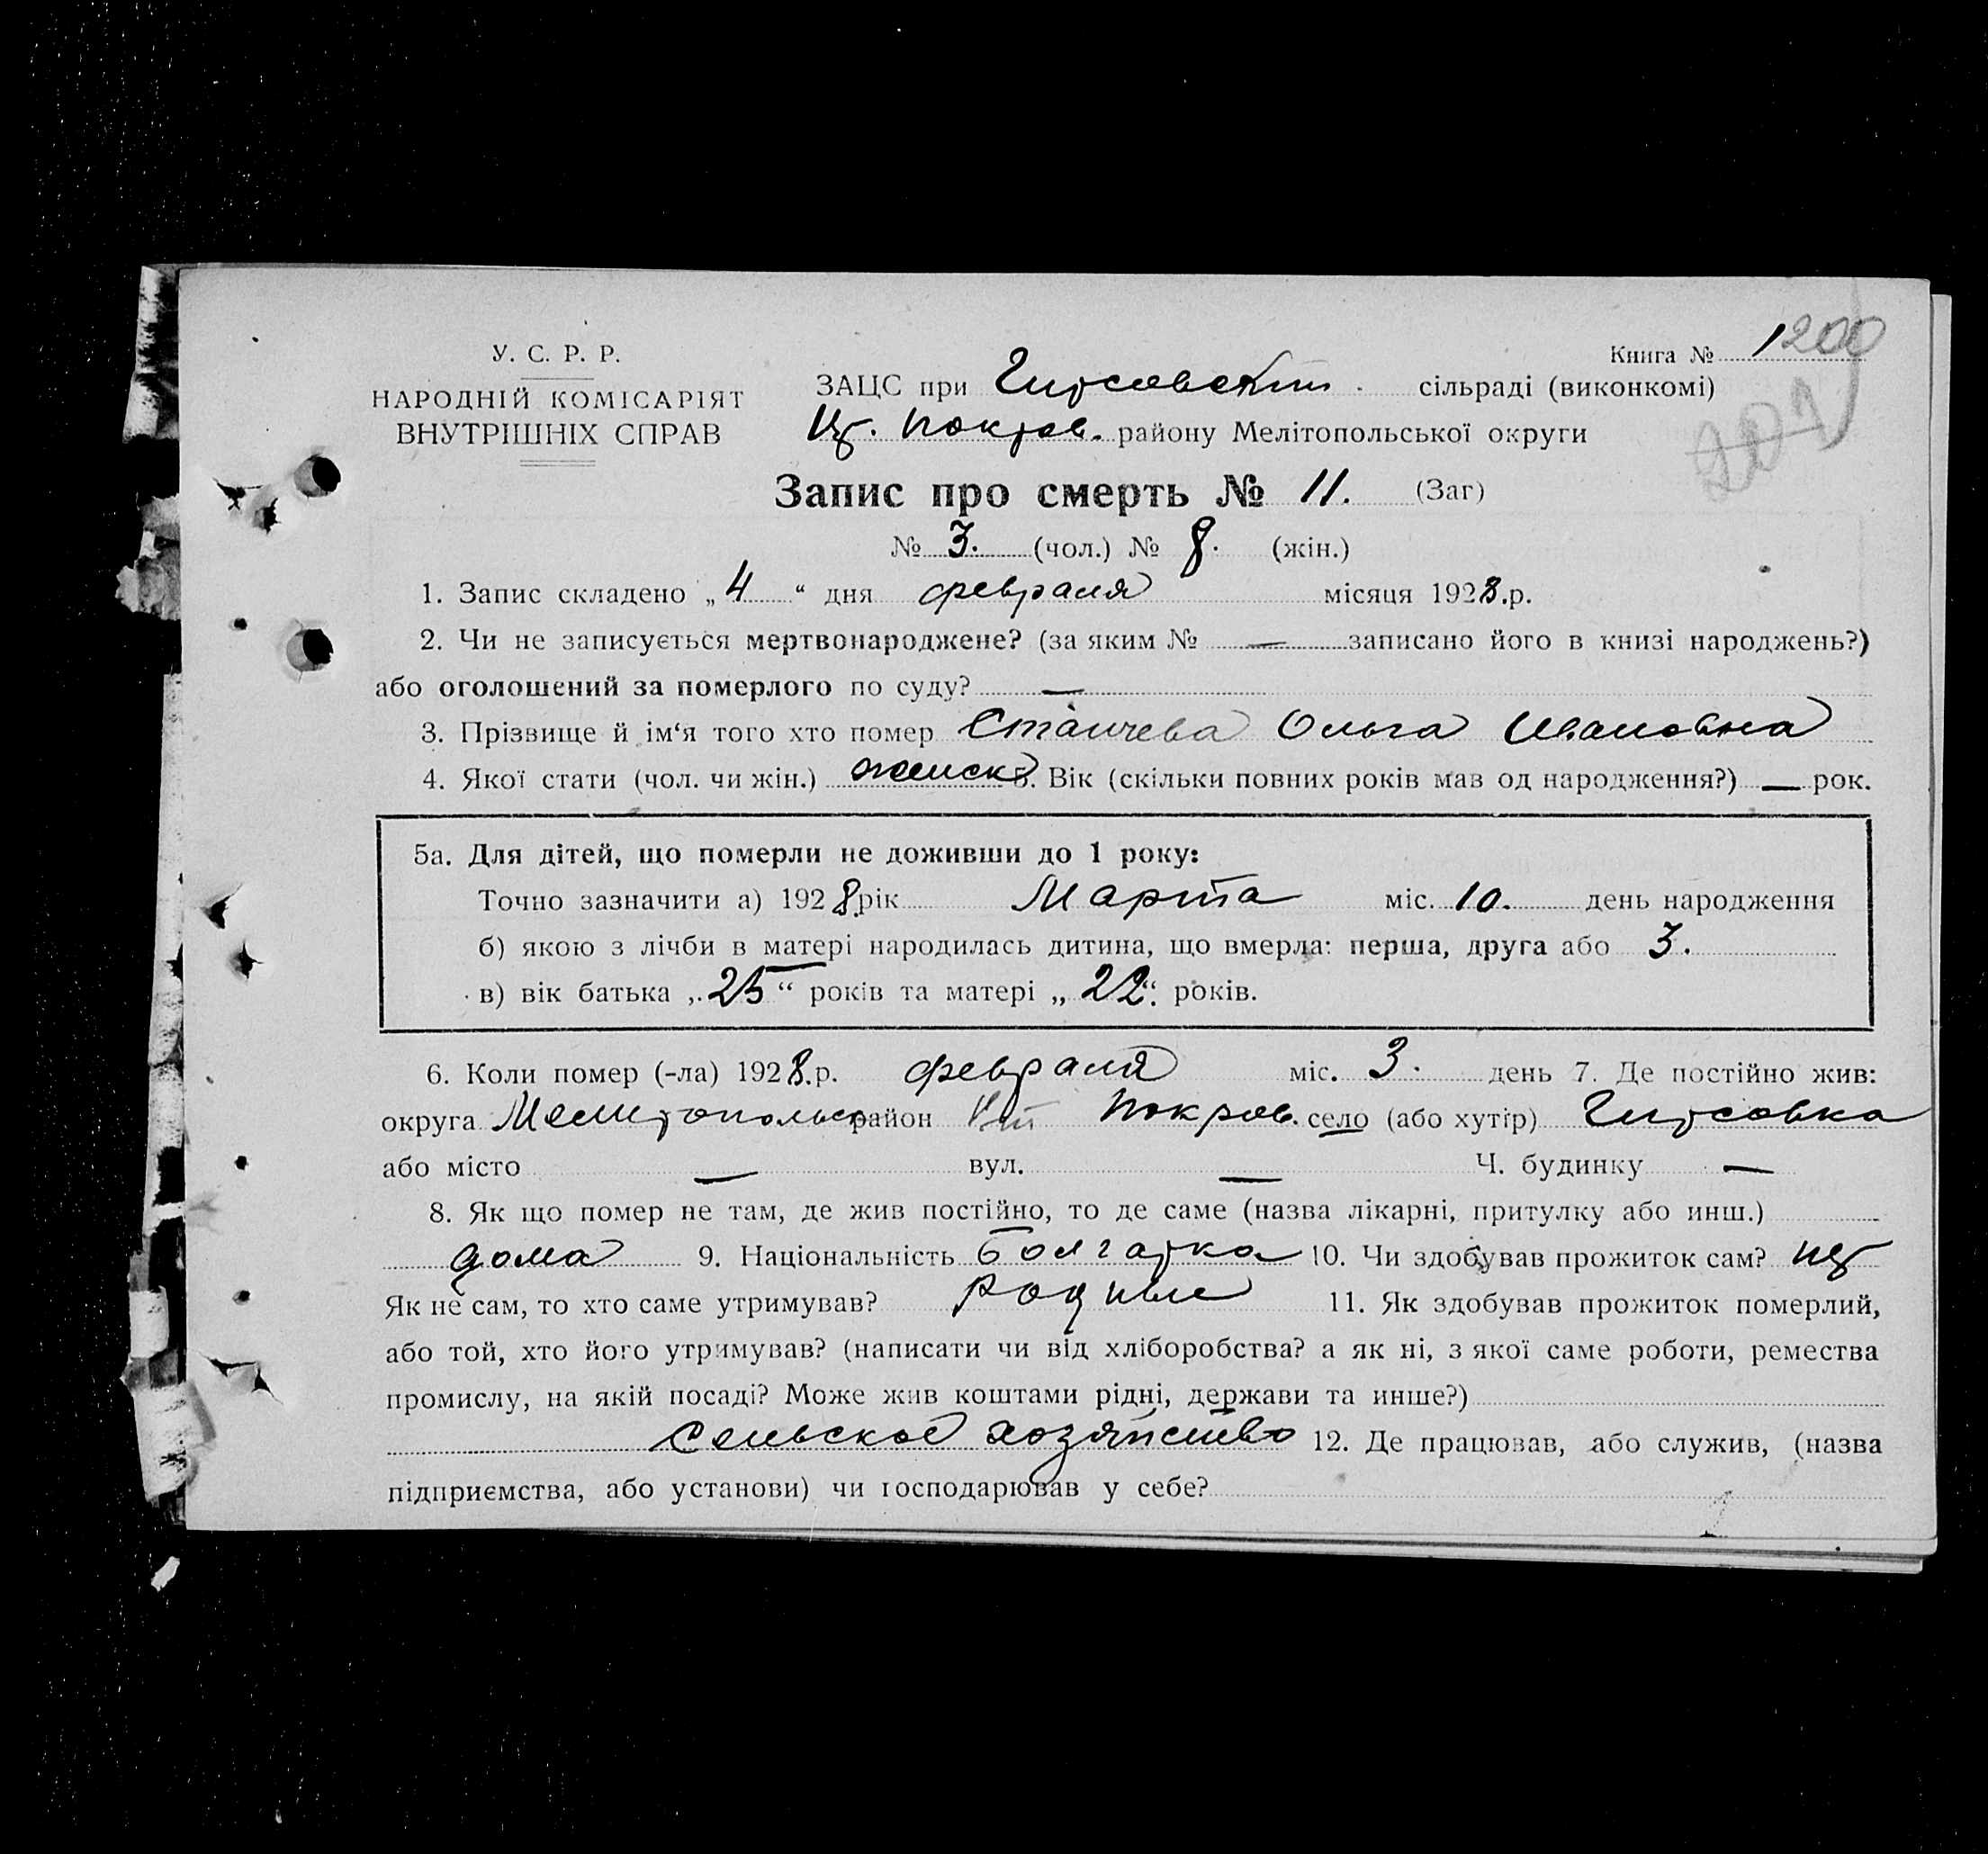 У. С. Р. Р.
НАРОДНІЙ КОМІСАРІЯТ
ВНУТРІШНІХ СПРАВ
Книга № 1 200
201
ЗАЦС при Гирсовской сільраді (виконкомі)
Покров. району Мелітопольської округи
Запис про смерть № 11. (Заг)
№ 3. (чол.) № 8. (жін.)
1. Запис складено „ 4 “ дня февраля місяця 1928.р.
2. Чи не записується мертвонароджене? (за яким № — записано його в книзі народжень?)
або оголошений за померлого по суду? —
3. Прізвище й ім‘я того хто помер Станчева Ольга Ивановна
4. Якої стати (чол. чи жін.) женск 5. Вік (скільки повних років мав од народження?) — рок.
5а. Для дітей, що померли не доживши до 1 року:
Точно зазначити а) 1928.рік Марта міс. 10. день народження
б) якою з лічби в матері народилась дитина, що вмерла: перша, друга або 3.
в) вік батька „ 25 “ років та матері „ 22 “. років.
6. Коли помер (-ла) 1928.р. февраля міс. 3. день 7. Де постійно жив:
округа Мелитопольск район Покров. село (або хутір) Гирсовка
або місто — вул. — Ч. будинку —
8. Як що помер не там, де жив постійно, то де саме (назва лікарні, притулку або инш.)
дома 9. Національність болгарка 10. Чи здобував прожиток сам?
Як не сам, то хто саме утримував? Родные 11. Як здобував прожиток померлий,
або той, хто його утримував? (написати чи від хліборобства? а як ні, з якої саме роботи, ремества
промислу, на якій посаді? Може жив коштами рідні, держави та инше?)
Сельское хозяйство 12. Де працював, або служив, (назва
підприємства, або установи) чи господарював у себе?